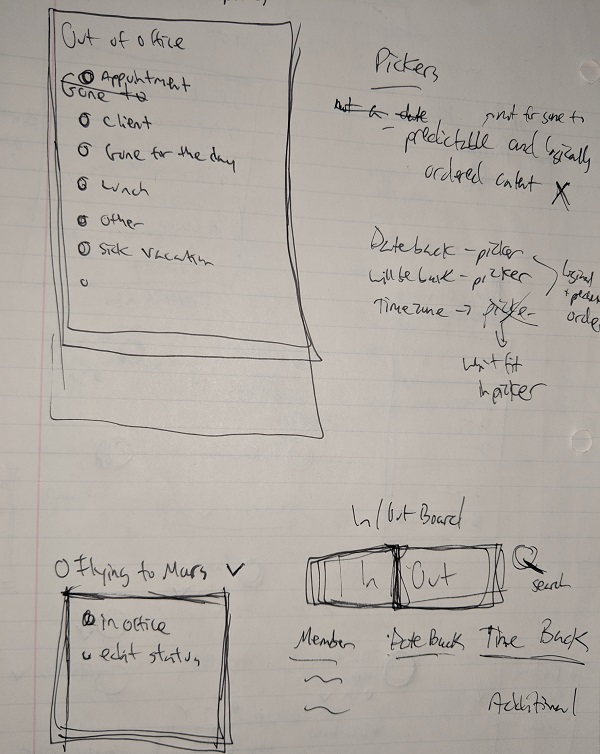 Out of office
Appointment
Gone to
Client
Gone for the day
Lunch
Other
Sick Vacation
Pickers
not a date
not for some to
predictable and logically
ordered content X
Date back - picker
will be back - picker
Timezone → picker
logical
order
won't fit
in picker
In/Out Board
In Out
search
Member Date Back Time Back
Additional
Flying to Mars ✓
in office
edit status